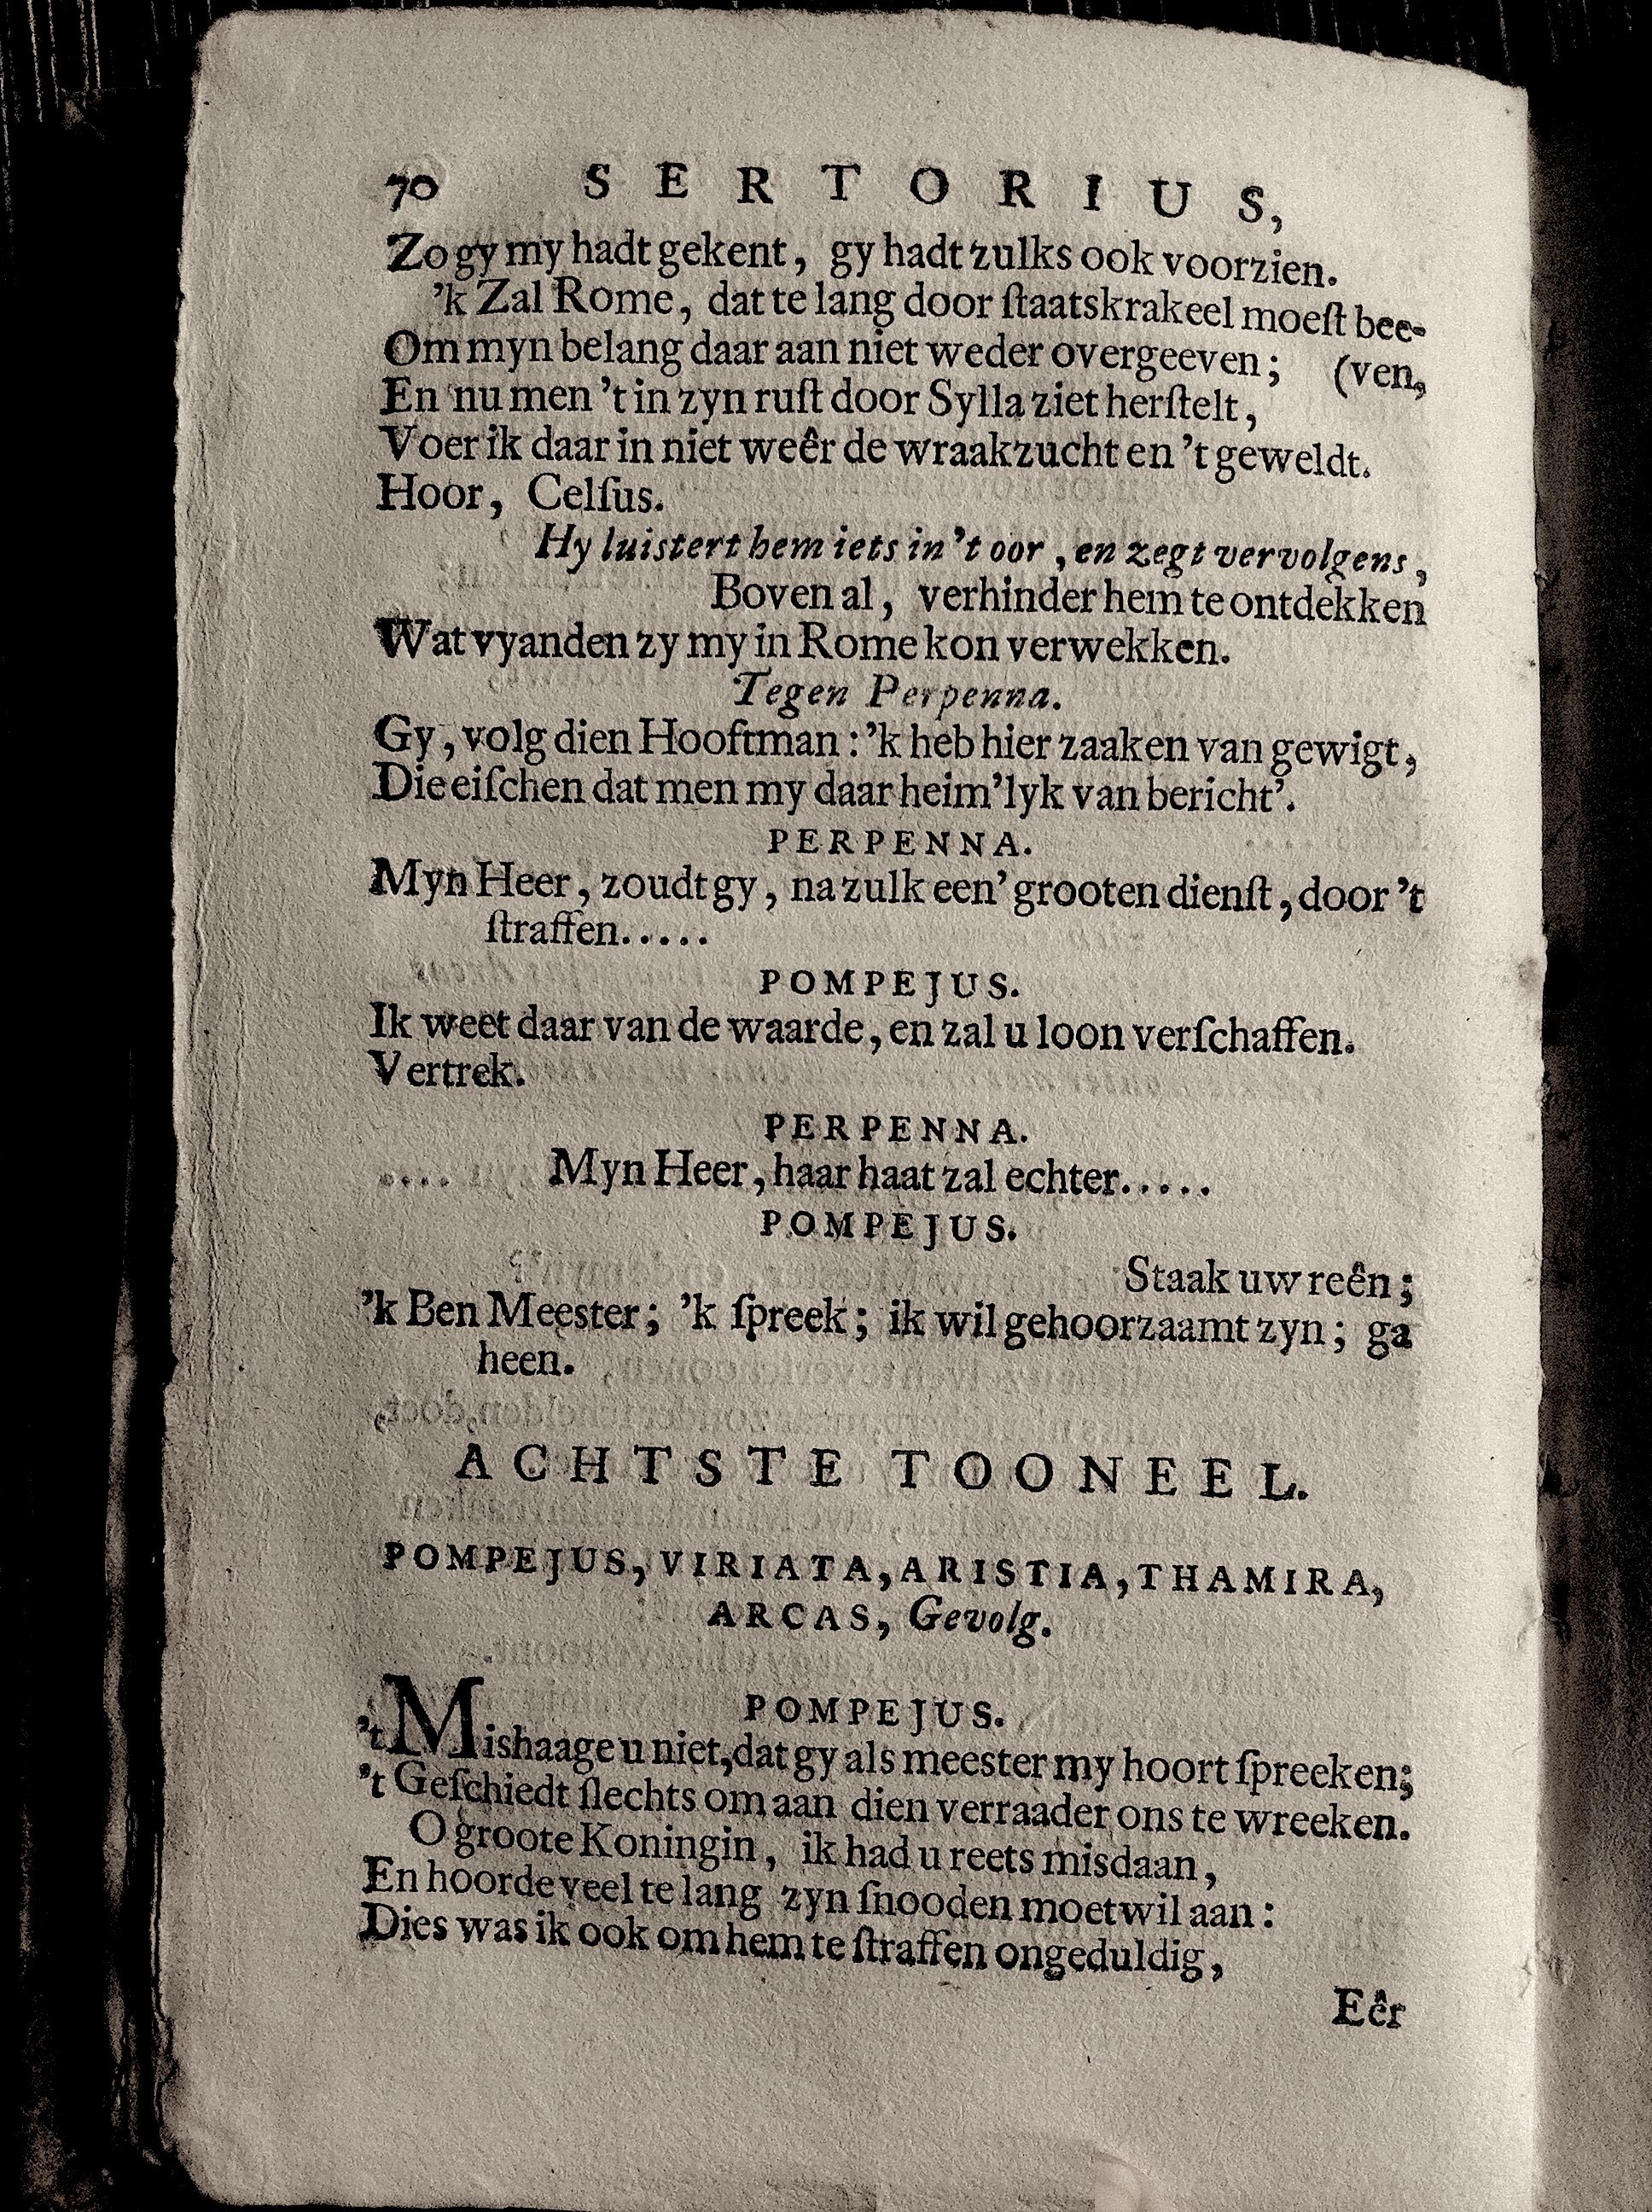 70 SERTORIUS,
Zo gy my hadt gekent, gy hadt zulks ook voorzien.
'k Zal Rome, dat te lang door ſtaatskrakeel moeſt bee-
Om myn belang daar aan niet weder overgeeven; (ven,
En nu men 't in zyn ruſt door Sylla ziet herſtelt,
Voer ik daar in niet weêr de wraakzucht en 't geweldt.
Hoor, Celſus.
Hy luistert hem iets in 't oor, en zegt vervolgens,
Boven al, verhinder hem te ontdekken
Wat vyanden zy my in Rome kon verwekken.
Tegen Perpenna.
Gy, volg dien Hooftman: 'k heb hier zaaken van gewigt,
Die eiſchen dat men my daar heim'lyk van bericht'.
PERPENNA.
Myn Heer, zoudt gy, na zulk een' grooten dienſt, door 't
ſtraffen.....
POMPEJUS.
Ik weet daar van de waarde, en zal u loon verſchaffen.
Vertrek.
PERPENNA.
Myn Heer, haar haat zal echter.....
POMPEJUS.
Staak uw reên;
'k Ben Meester; 'k ſpreek; ik wil gehoorzaamt zyn; ga
heen.
ACHTSTE TOONEEL.
POMPEJUS, VIRIATA, ARISTIA, THAMIRA,
ARCAS, Gevolg.
POMPEJUS.
't Mishaage u niet, dat gy als meester my hoort ſpreeken;
't Geſchiedt ſlechts om aan dien verraader ons te wreeken.
O groote Koningin, ik had u reets misdaan,
En hoorde veel te lang zyn ſnooden moetwil aan:
Dies was ik ook om hem te ſtraffen ongeduldig,
Eêr